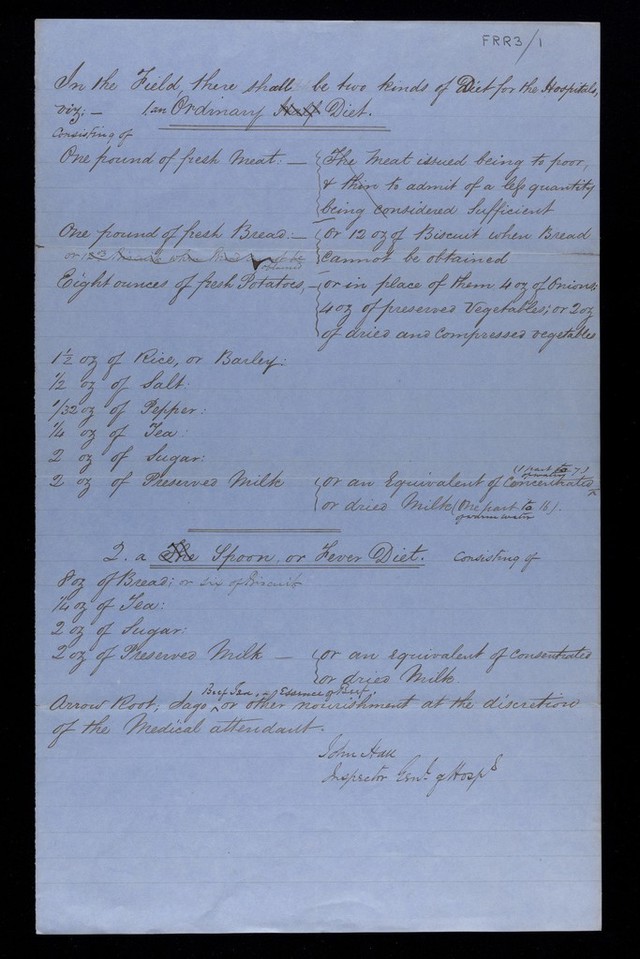 FRR3/1
In the Field, there shall be two kinds of Diet for the Hospitals,
viz; — 1. an Ordinary Half Diet.
Consisting of
One pound of fresh Meat: — The Meat issued being to poor,
& thin to admit of a less quantity
being considered Sufficient
One pound of fresh Bread: — or 12 oz of Biscuit when Bread
or 12 oz when Bread cannot be
obtained
cannot be obtained
Eight ounces of fresh Potatoes, — or in place of them 4 oz of Onions;
4 oz of preserved Vegetables; or 2 oz
of dried and compressed vegetables
1½ oz of Rice, or Barley:
½ oz of Salt:
1/32 oz of Pepper:
¼ oz of Tea:
2 oz of Sugar:
(1 part to 7)
of water
2 oz of Preserved Milk or an Equivalent of Concentrated
or dried Milk (One part to 16).
of warm water
2. a The Spoon, or Fever Diet. Consisting of
8 oz of Bread; or six of Biscuit
¼ oz of Tea:
2 oz of Sugar:
2 oz of Preserved Milk — or an equivalent of consentrated
or dried Milk.
Beef Tea, or Essence of Beef.
Arrow Root; Sago or other nourishment at the discretion
of the Medical attendant.
John Hall
Inspector Genl. of Hospls